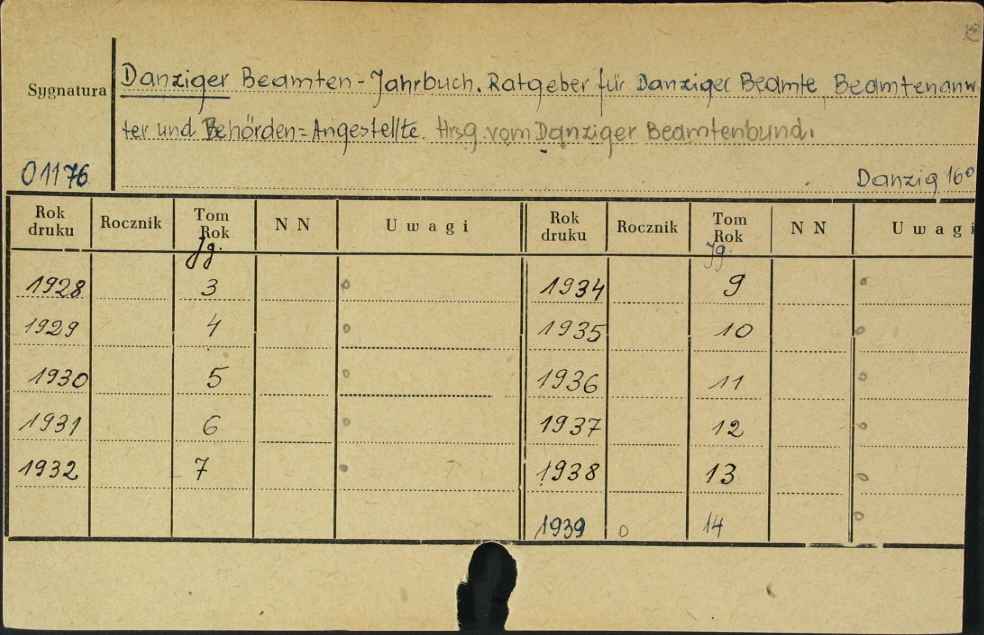 Sygnatura
Danziger Beamten-Jahrbuch. Ratgeber für Danziger Beamte, Beamtenanw
ter und Behörden=Angestellte. Hrsg. vom Danziger Beamtenbund.
01176
Danzig 16°
Rok druku Rocznik Tom Rok NN Uwagi Rok druku Rocznik Tom Rok NN Uwagi
Jg. Jg.
1928 3 o 1934 9 o
1929 4 o 1935 10 o
1930 5 o 1936 11 o
1931 6 o 1937 12 o
1932 7 o 1938 13 o
1939 o 14 o